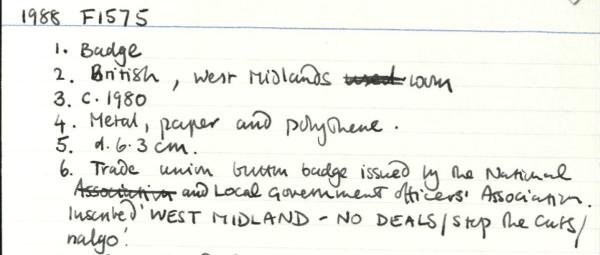 1988 F1575
1. Badge
2. British, West Midlands used worn
3. c. 1980
4. Metal, paper and polythene.
5. d. 6.3 cm.
6. Trade union button badge issued by the National
Association and Local Government Officers' Association.
Inscribed 'WEST MIDLAND - NO DEALS/Stop the Cuts/
nalgo'.